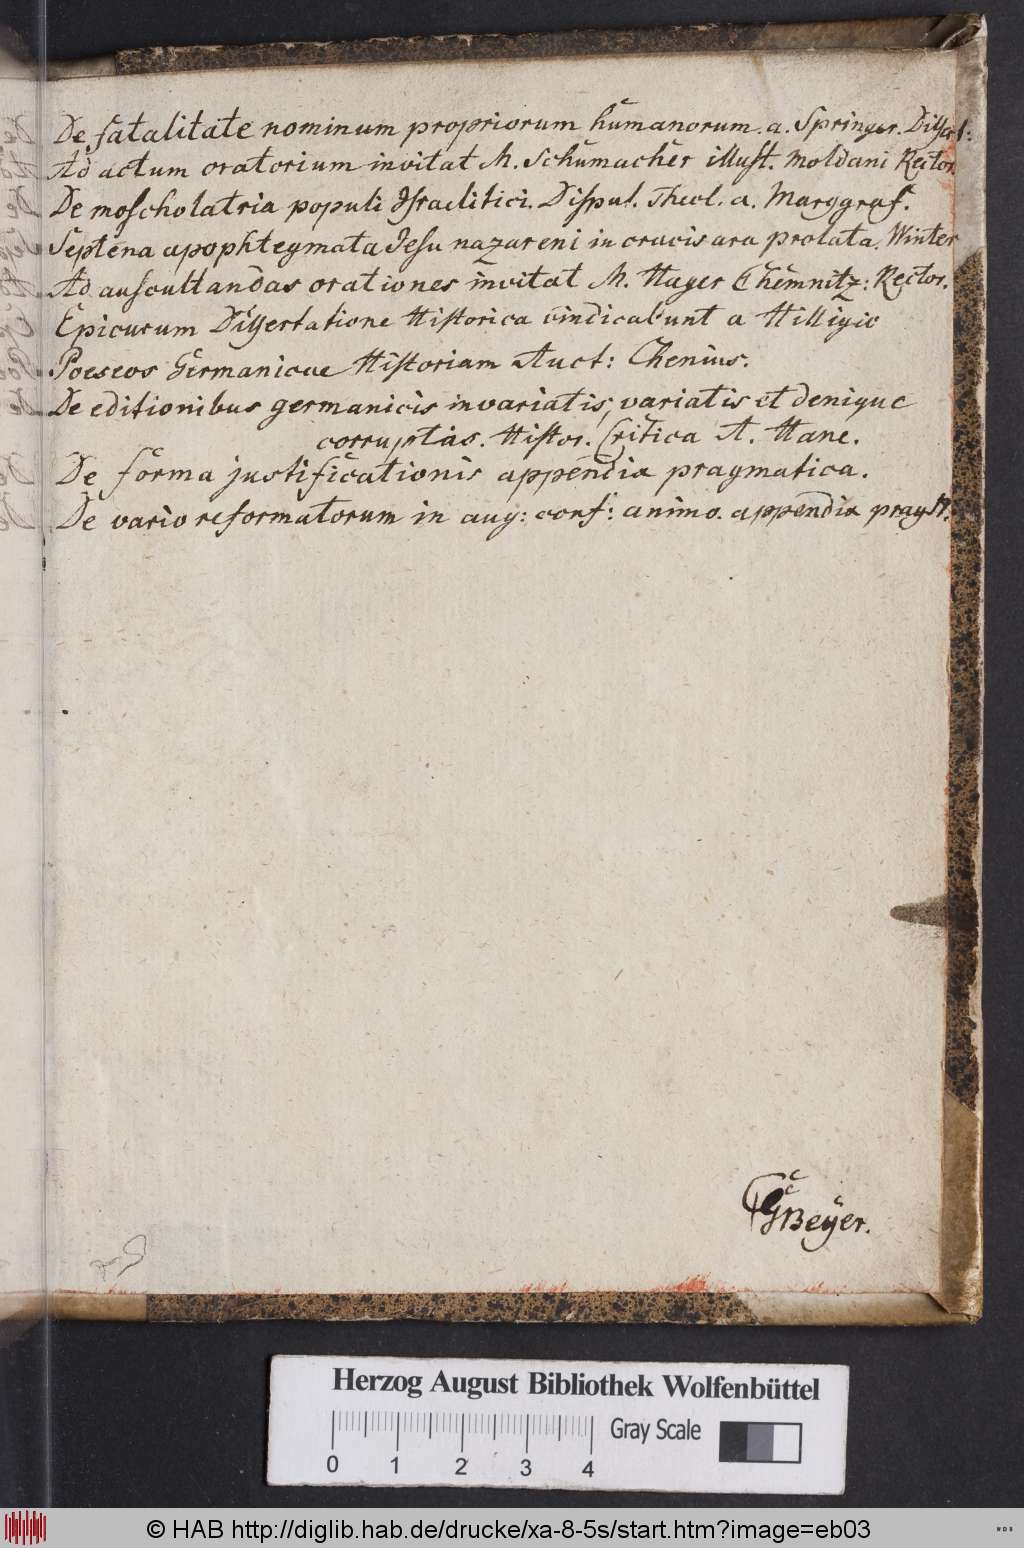 De fatalitate nominum propriorum humanorum. a. Springer. Dissert:
Ad actum oratorium invitat M. Schumacher illust. Moldani Rector.
De moscholatria populi Israelitici. Disput. Theol. a. Marggraf.
Septena apophtegmata Jesu nazareni in crucis ara prolata. Winter
Ad auscultandas orationes invitat M. Hager Chemnitz: Rector.
Epicurum Dissertatione Historica vindicabunt a Hilligio
Poeseos Germanicae Historiam Auct: Chenius.
De editionibus germanicis invariatis, variatis et denique
corruptis. Histor. Critica A. Hane.
De forma justificationis appendix pragmatica.
De vario reformatorum in aug: conf: animo. appendix
GBeyer.
Herzog August Bibliothek Wolfenbüttel
Gray Scale
0 1 2 3 4
© HAB http://diglib.hab.de/drucke/xa-8-5s/start.htm?image=eb03